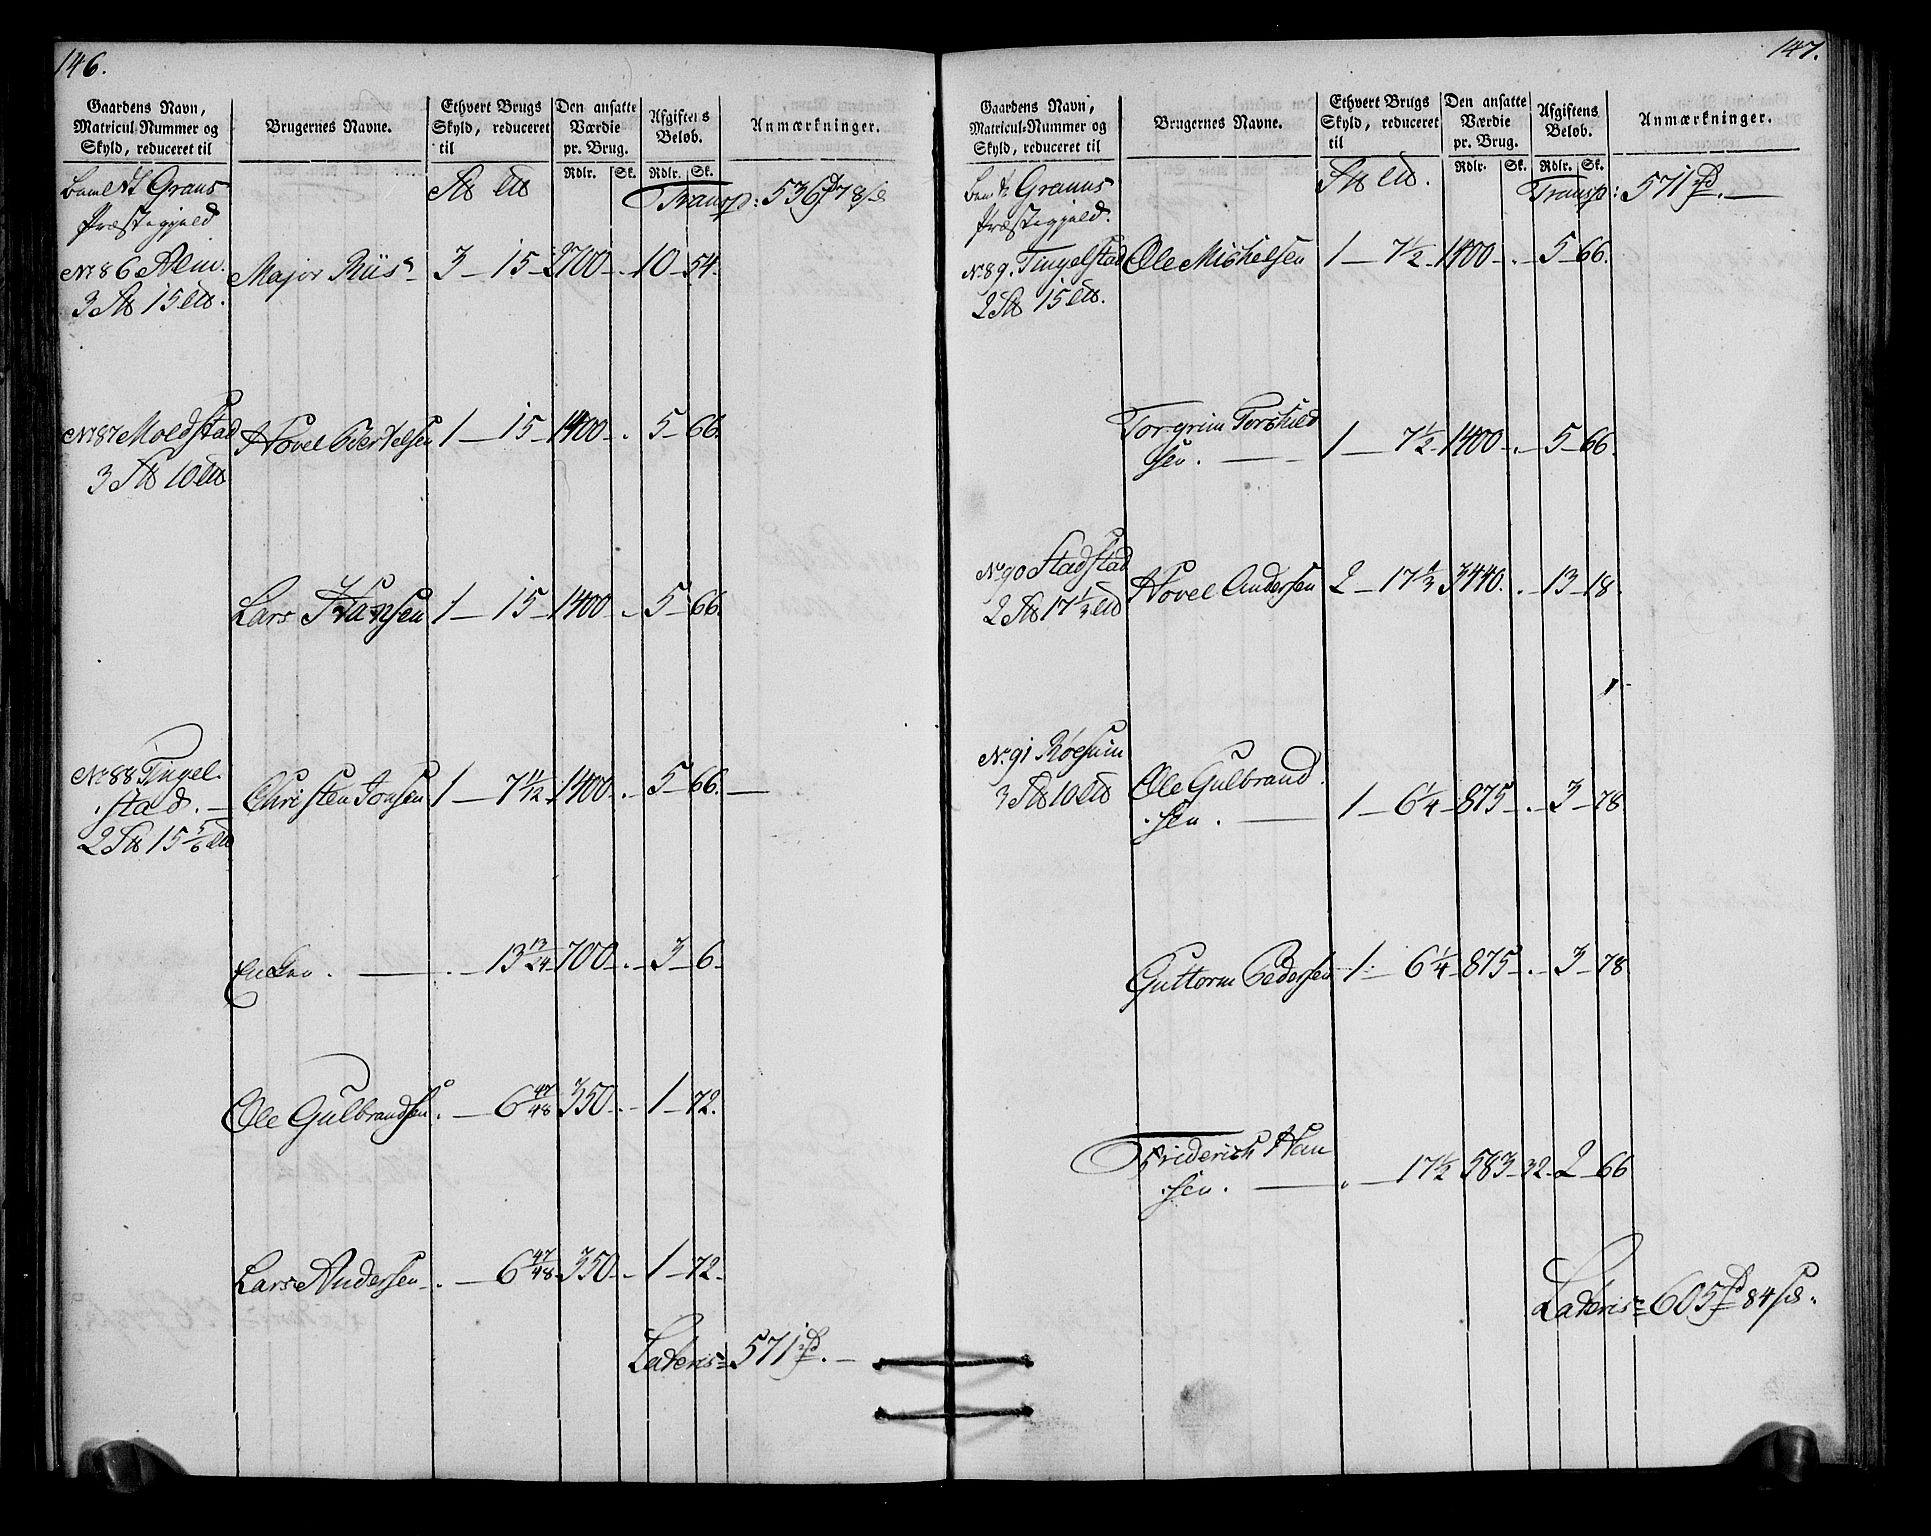 146.
Gaardens Navn, Matricul-Nummer og Skyld, reduceret til
Brugernes Navne.
Ethvert Brugs Skyld, reduceret til
Den ansatte Værdie pr. Brug.
Rdlr. Sk.
Afgiftens Beløb.
Rdlr. Sk.
Anmærkninger.
Grans
Præstegjeld
Transp: 536 78
No 86 Alm. Major Riis 3 — 15 — 2700 — . 10 — 54.
3 15
No 87 Moldstad Hovel Bertelsen 1 — 15 — 1400 — . 5 — 66.
3 10
Lars Fransen 1 — 15 — 1400 — . 5 — 66.
No 88 Tingel-
stad. Christen Jonsen 1 — 7 11/12 1400 — . 5 — 66.
2 15 5/6
Encken . — . — 13 13/24 700 — . 3 — 6 —
Ole Gulbrandsen . — 6 47/48 350 — . 1 — 72.
Lars Andersen . — 6 47/48 350 — . 1 — 72 —
Lateris 571
147.
Gaardens Navn, Matricul-Nummer og Skyld, reduceret til
Brugernes Navne.
Ethvert Brugs Skyld, reduceret til
Den ansatte Værdie pr. Brug.
Rdlr. Sk.
Afgiftens Beløb.
Rdlr. Sk.
Anmærkninger.
Granns
Præstegjeld.
Transp: 571
No 89. Tingelstad Ole Michelsen 1 — 7 1/2 — 1400 — . 5 — 66.
2 15
Torgrim Torskild
sen . — 1 — 7 1/2 — 1400 — . — 5 — 66.
No 90 Stadstad Hovel Andersen 2 — 17 1/3 3440. . — 13 — 18.
2 17 1/3
No 91 Røesum Ole Gulbrand
3 10 sen . — 1 — 6 1/4 — 875 — . — 3 — 78
Guttorm Pedersen 1 — 6 1/4 — 875 — . — 3 — 78
Friderich Han
sen . — . — 17 1/2 583 — 32 — 2 — 66
Lateris 605 84